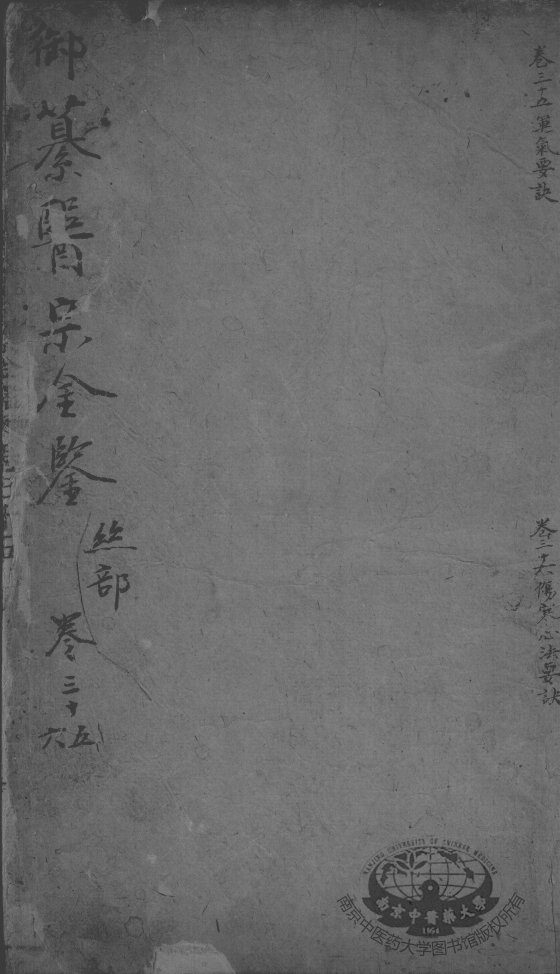 卷三十五運氣要訣
卷三十六傷寒心法要訣
御纂醫宗金鑒
絲部
卷三十
五
六
NANJING UNIVERSITY OF CHINESE MEDICINE
南京中醫藥大學
1954
南京中医药大学图书馆版权所有